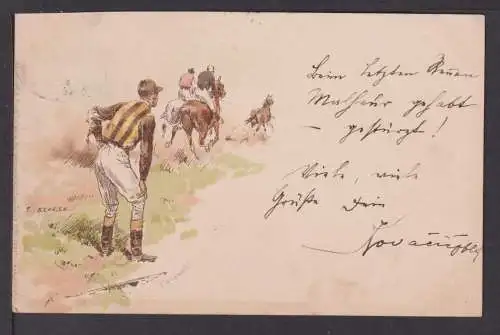 Beim letzten Rennen
Malheur gehabt
– gestürzt!
Viele, viele
Grüße Dein